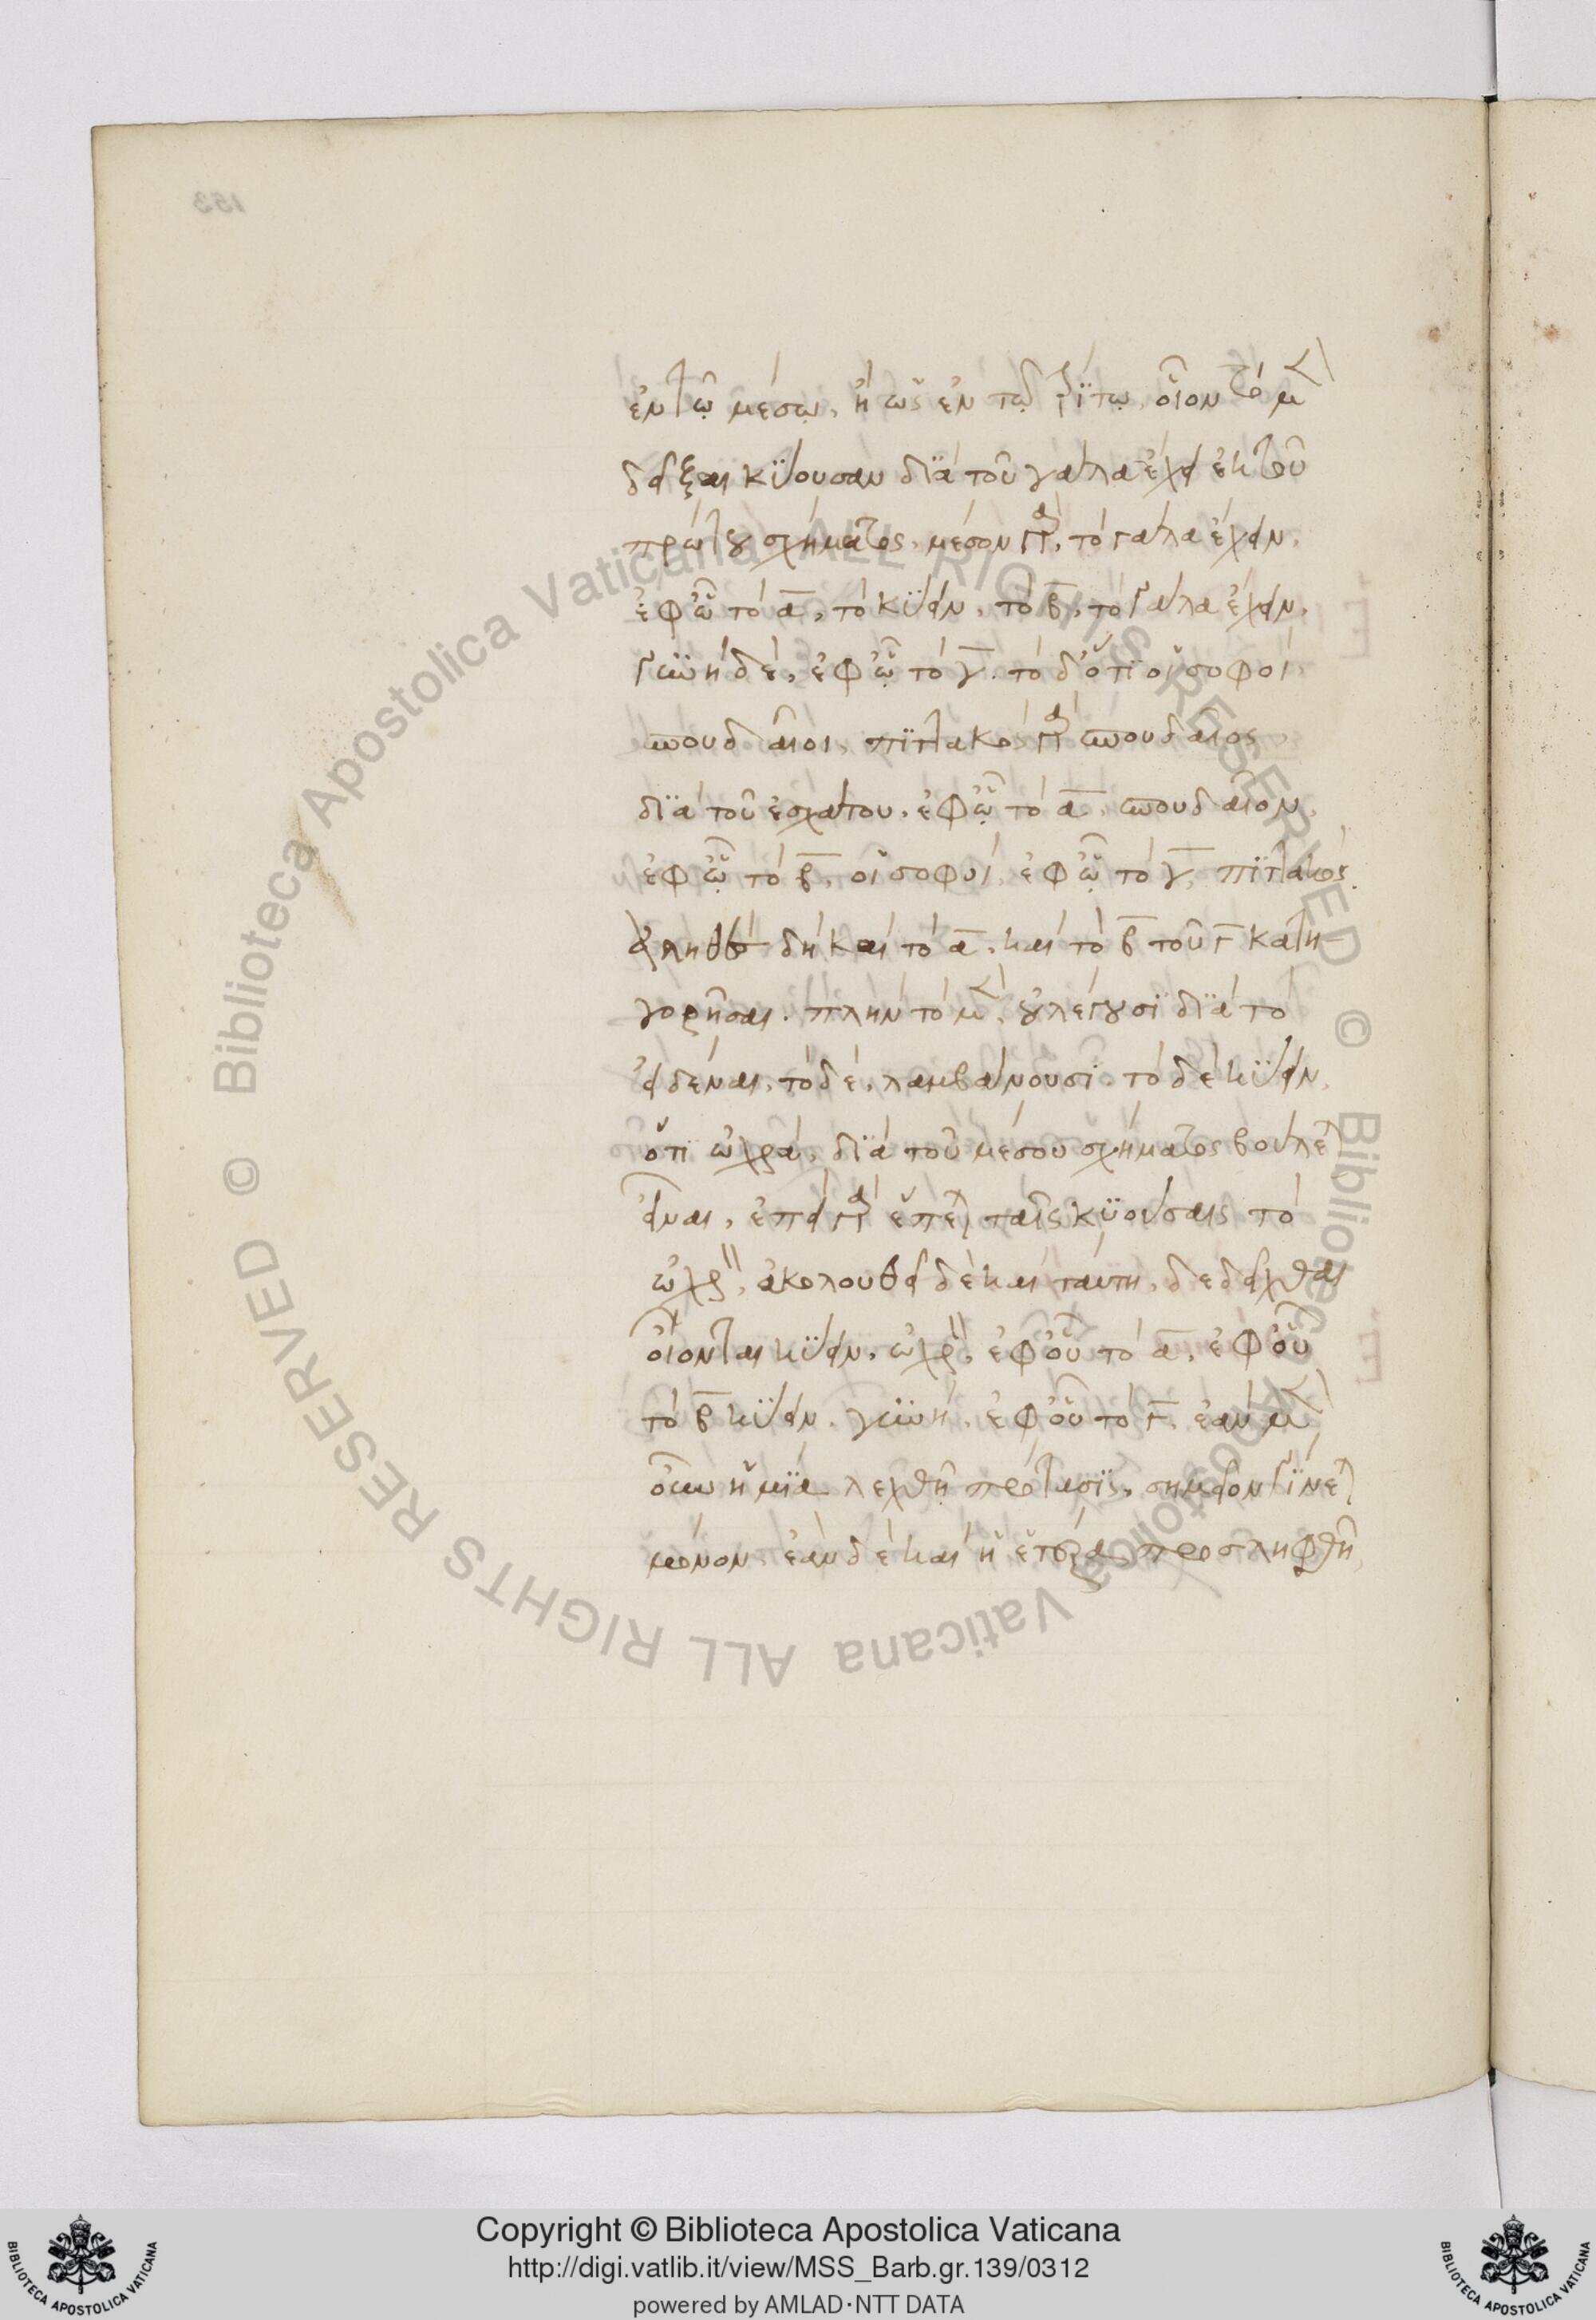 153
ἐν τῷ μέσῳ, ἢ ὡς ἐν τῷ τρίτῳ, οἷον τὸ μ
δεῖξαι κύουσαν διὰ τοῦ γάλα ἔχει ἐκ τοῦ
πρώτου σχήματος, μέσον γ, τὸ γάλα ἔχειν,
ἐφ ᾧ τὸ α, τὸ κύειν, τὸ β, τὸ γάλα ἔχειν,
γυνὴ δὲ, ἐφ ᾧ τὸ γ. τὸ δ ὅτι οἱ σοφοὶ,
σπουδαῖοι, πιττακὸς γ σπουδαῖος,
διὰ τοῦ ἐσχάτου, ἐφ ᾧ τὸ α, σπουδαῖον,
ἐφ ᾧ τὸ β, οἱ σοφοί, ἐφ ᾧ τὸ γ, πιττακός.
ἀληθὲς δὴ καὶ τὸ α, καὶ τὸ β τοῦ γ κατη
γορῆσαι. πλὴν τὸ μ, οὐ λέγουσι διὰ τὸ
εἰδέναι, τὸ δὲ, λαμβάνουσι. τὸ δὲ κύειν,
ὅτι ὠχρά, διὰ τοῦ μέσου σχήματος βούλε
εἶναι, ἐπεὶ γ ἕπε ταῖς κυούσαις τὸ
ὠχρ, ἀκολουθεῖ δὲ καὶ ταύτῃ, δεδεῖχθαι
οἴονται κύειν, ὠχρ, ἐφ οὗ τὸ α, ἐφ οὗ
τὸ β κύειν. γυνὴ, ἐφ οὗ τὸ γ, ἐὰν μ
οὖν ἡ μία λεχθῇ πρότασις, σημεῖον γίνε
μόνον, ἐὰν δὲ καὶ ἡ ἑτέρα προσληφθῇ,
© Biblioteca Apostolica Vaticana ALL RIGHTS RESERVED © Biblioteca Apostolica Vaticana ALL RIGHTS RESERVED
BIBLIOTECA APOSTOLICA VATICANA
Copyright © Biblioteca Apostolica Vaticana
http://digi.vatlib.it/view/MSS_Barb.gr.139/0312
powered by AMLAD·NTT DATA
BIBLIOTECA APOSTOLICA VATICANA